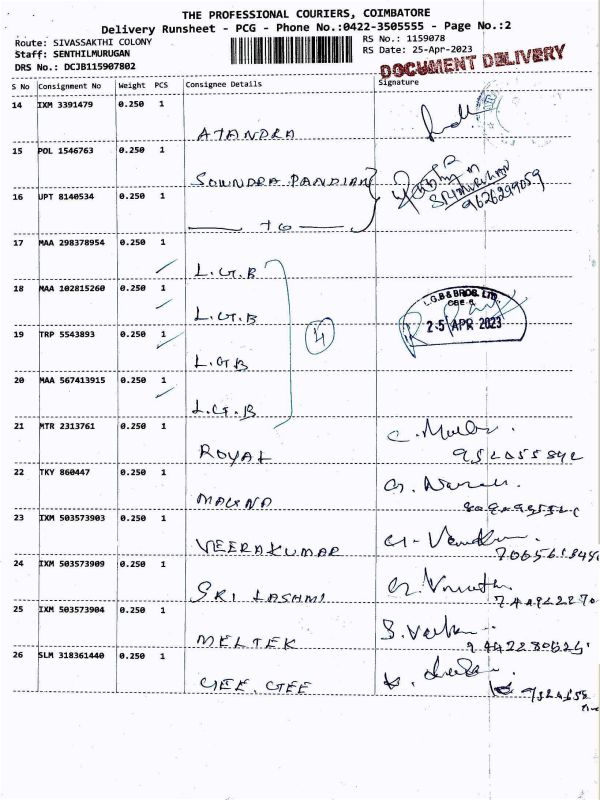 THE PROFESSIONAL COURIERS, COIMBATORE
Delivery Runsheet - PCG - Phone No.:0422-3505555 - Page No.:2
Route: SIVASSAKTHI COLONY
RS No.: 1159078
Staff: SENTHILMURUGAN
RS Date: 25-Apr-2023
DRS No.: DCJB115907802
DOCUMENT DELIVERY
S No Consignment No Weight PCS Consignee Details Signature
14 IXM 3391479 0.250 1
ATANDRA
15 POL 1546763 0.250 1
SOUNDRA PANDIAN
SRIMURUGAN
9626299059
16 UPT 8140534 0.250 1
17 MAA 298378954 0.250 1
L.G.B
18 MAA 102815260 0.250 1
L.G.B
L.G.B & BROS. LTD.
CBE-6.
25 APR 2023
19 TRP 5543893 0.250 1
4
L.G.B
20 MAA 567413915 0.250 1
L.G.B
21 MTR 2313761 0.250 1
ROYAL
22 TKY 860447 0.250 1
MAGNA
23 IXM 503573903 0.250 1
VEERAKUMAR
24 IXM 503573909 0.250 1
SRI LASHMI
25 IXM 503573904 0.250 1
MELTEK
26 SLM 318361440 0.250 1
GEE. GEE